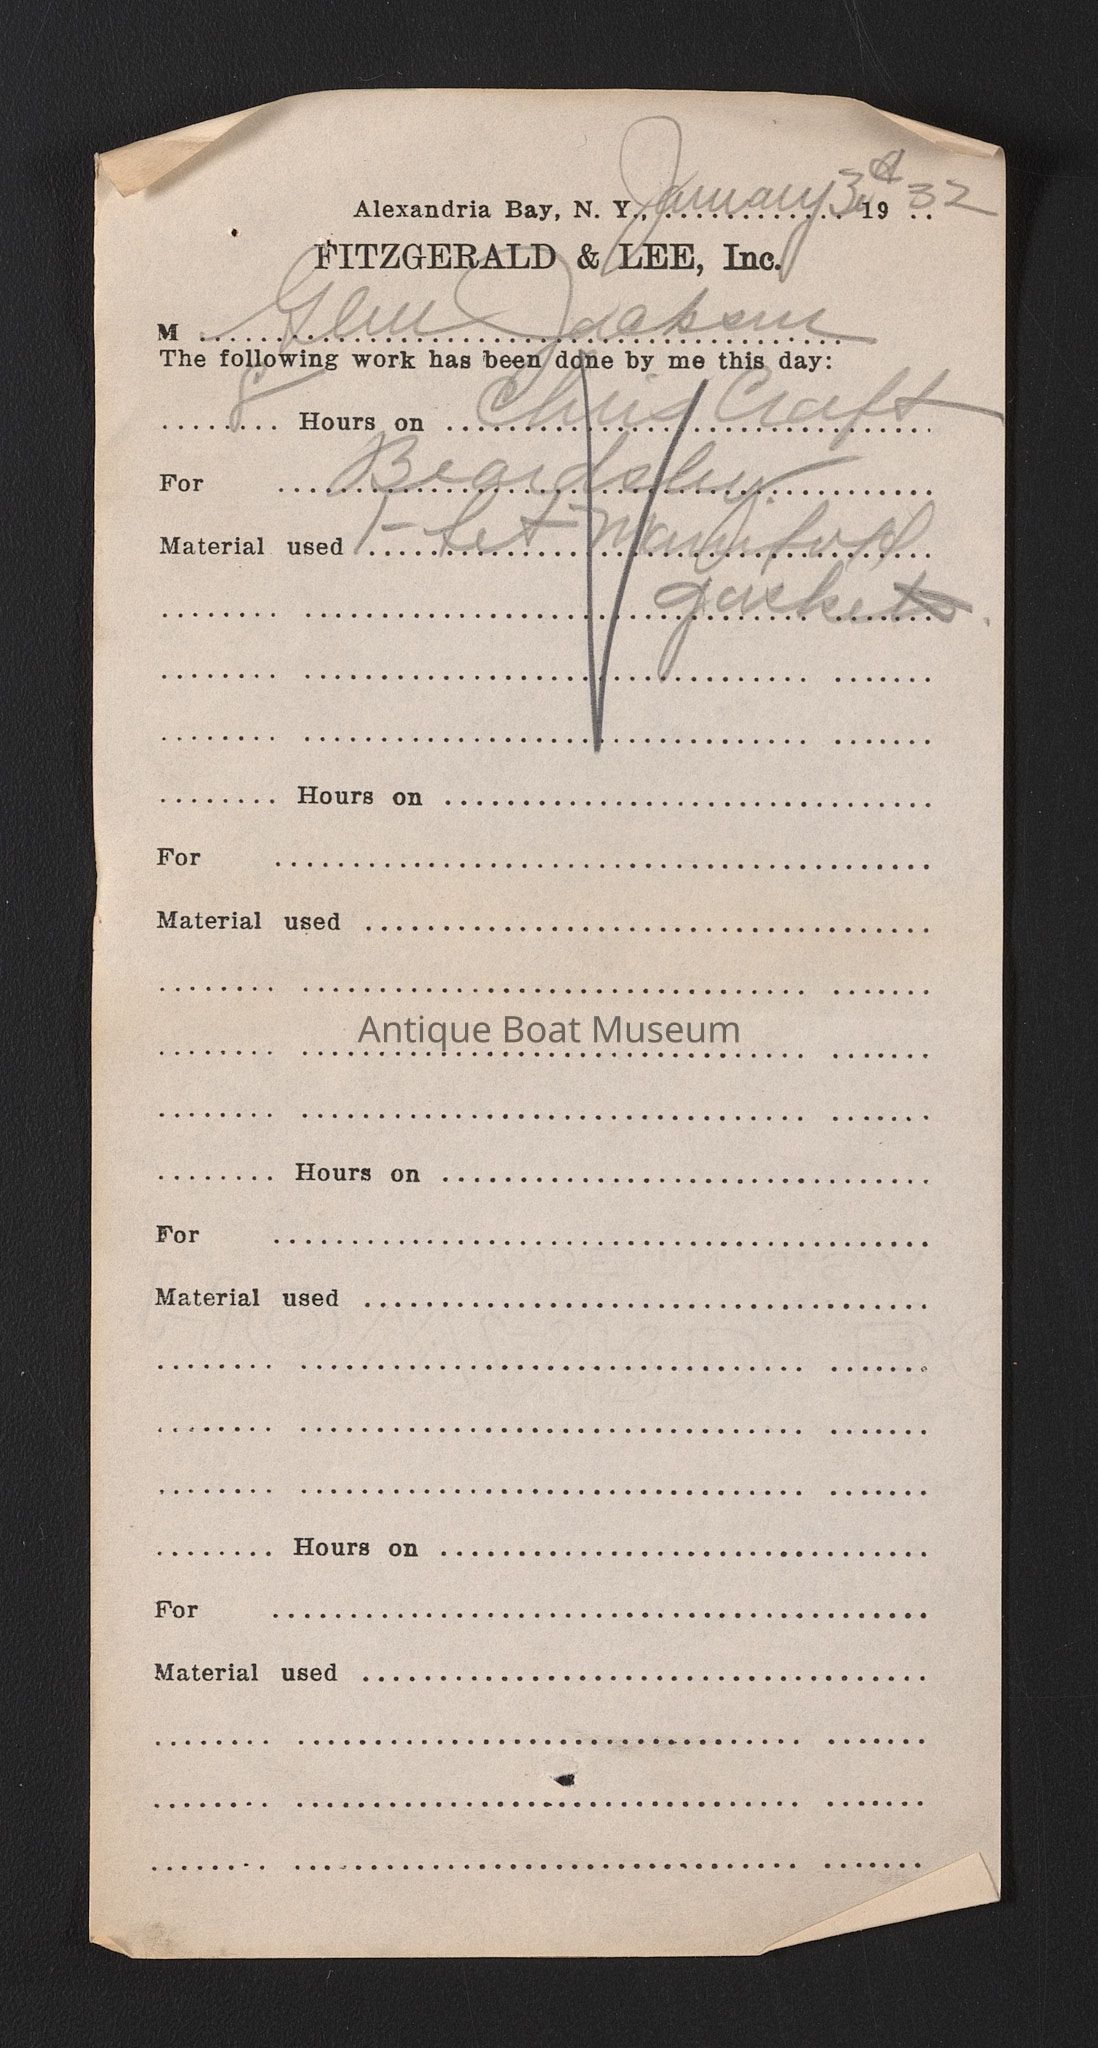 Alexandria Bay, N. Y., January 3d 19 32
FITZGERALD & LEE, Inc.
M Glen Jackson
The following work has been done by me this day:
8 Hours on Chris Craft
For Beardsley
Material used 1- Set Manifold
gaskets.
Hours on
For
Material used
Antique Boat Museum
Hours on
For
Material used
Hours on
For
Material used